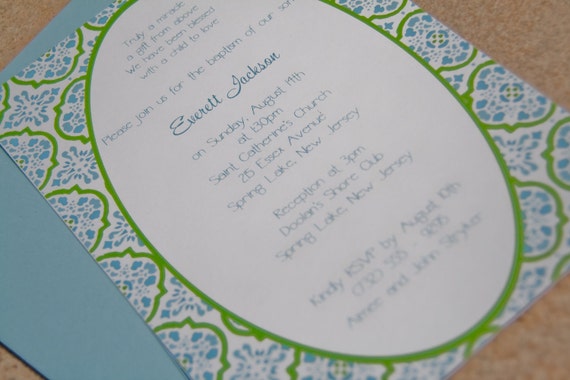 Truly a miracle
a gift from above
We have been blessed
with a child to love
Please join us for the baptism of our son
Everett Jackson
on Sunday, August 14th
at 1:30pm
Saint Catherine's Church
215 Essex Avenue
Spring Lake, New Jersey
Reception at 3pm
Doolan's Shore Club
Spring Lake, New Jersey
Kindly RSVP by August 10th
(732) 555 -
Aimee and John Stryker